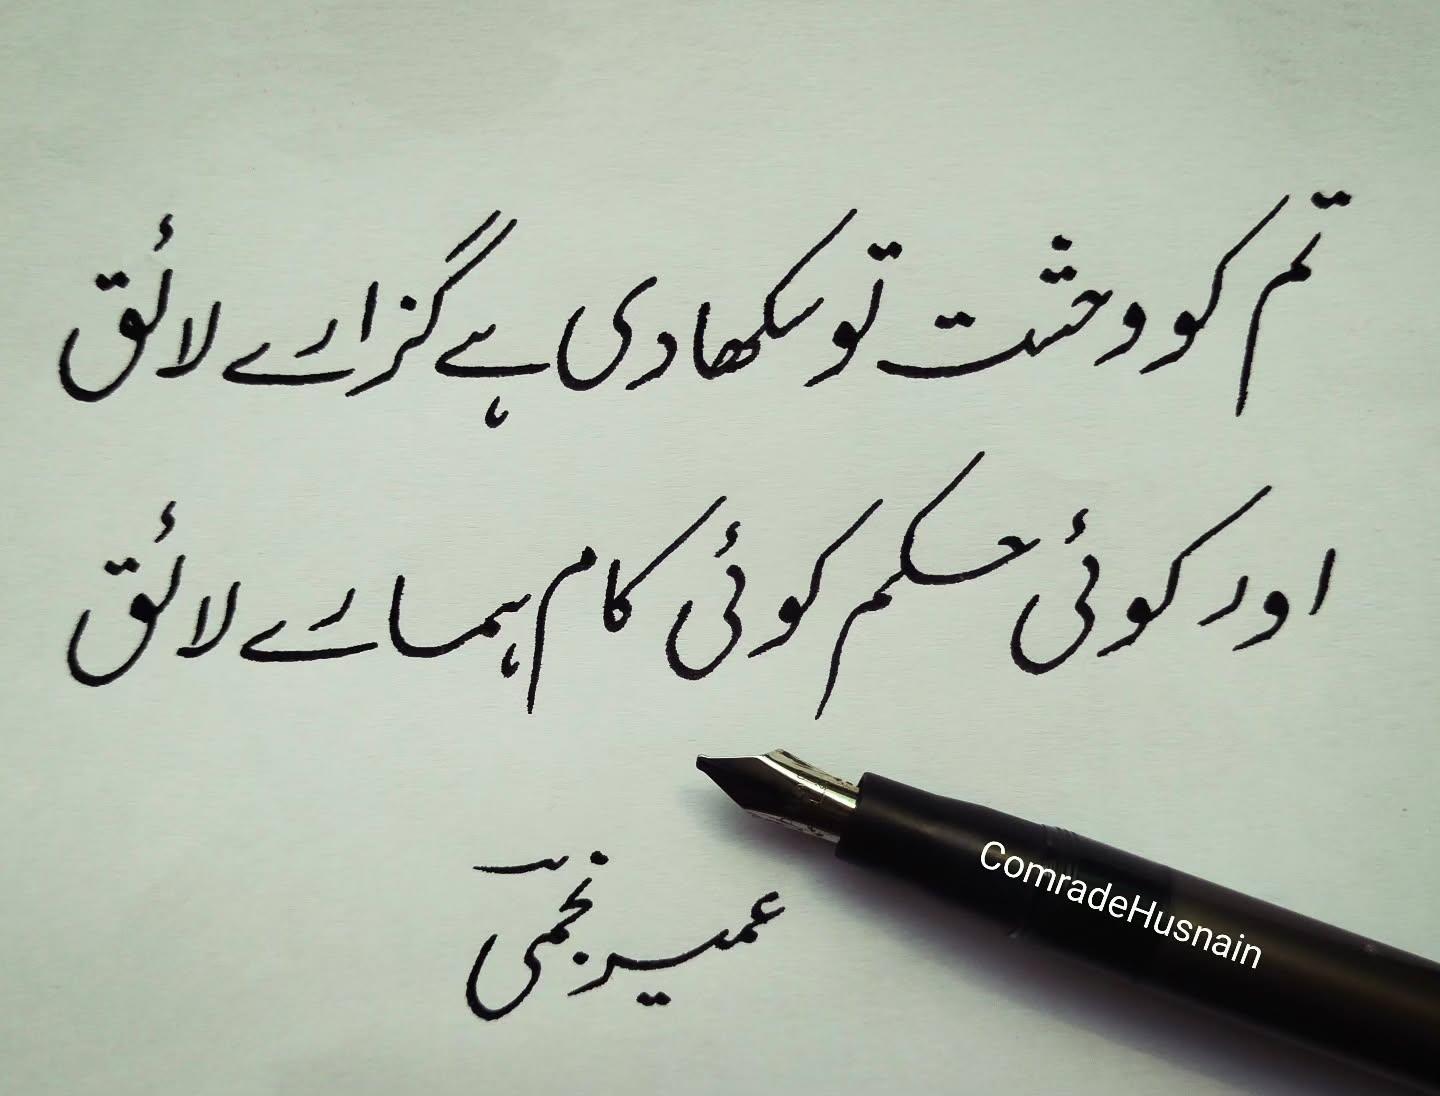 تم کو وحشت تو سکھا دی ہے گزارے لائق
اور کوئی حکم کوئی کام ہمارے لائق
عمیر نجمی
ComradeHusnain